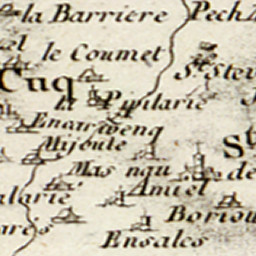 la Barriere
Pech
el
le Coumet
Cuq
St. Ste
la Pipilarie
Encarweng
St
Mijoule
Mas nau
de
Amiel
alarié
Boriou
arés
Ensales